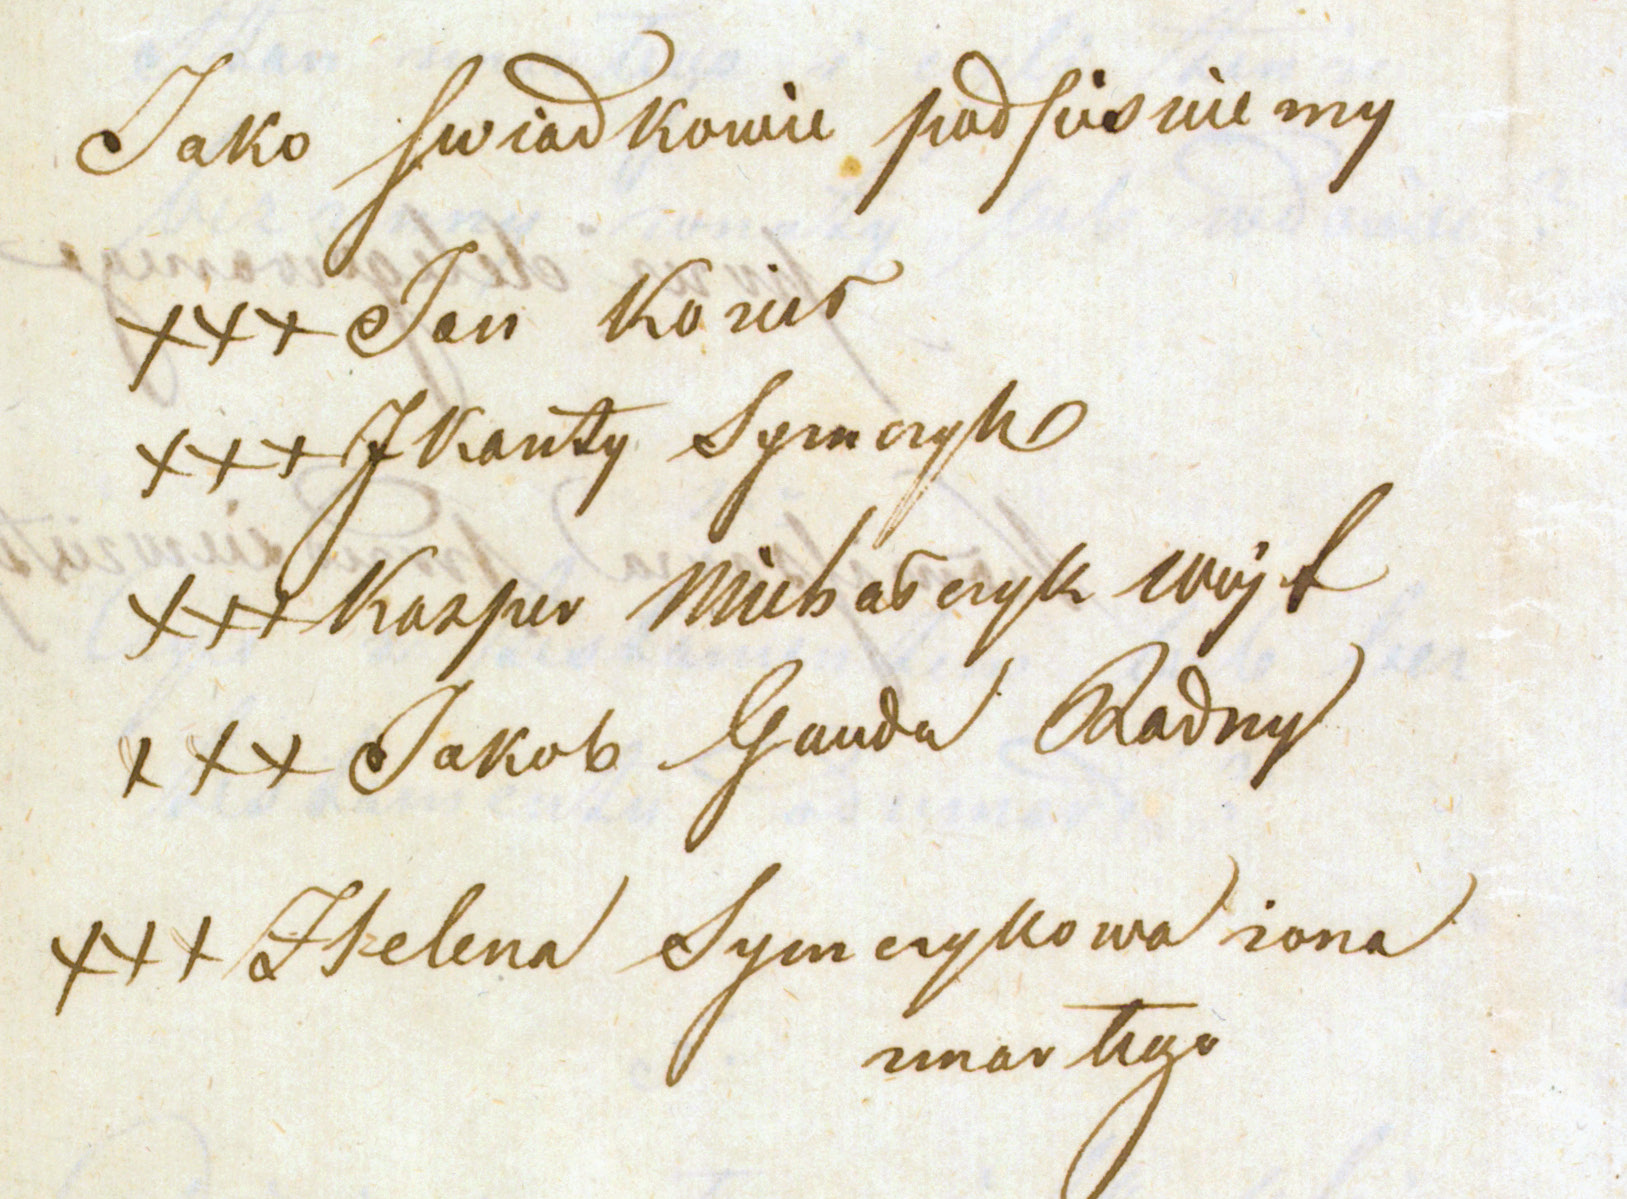 Jako swiadkowie podpisuiemy
+++ Jan Kozieł
+++ J Kanty Symczyk
+++ Kasper Michałczyk wójt
+++ Jakob Gauda Radny
+++ Helena Symczykowa zona
zmartego